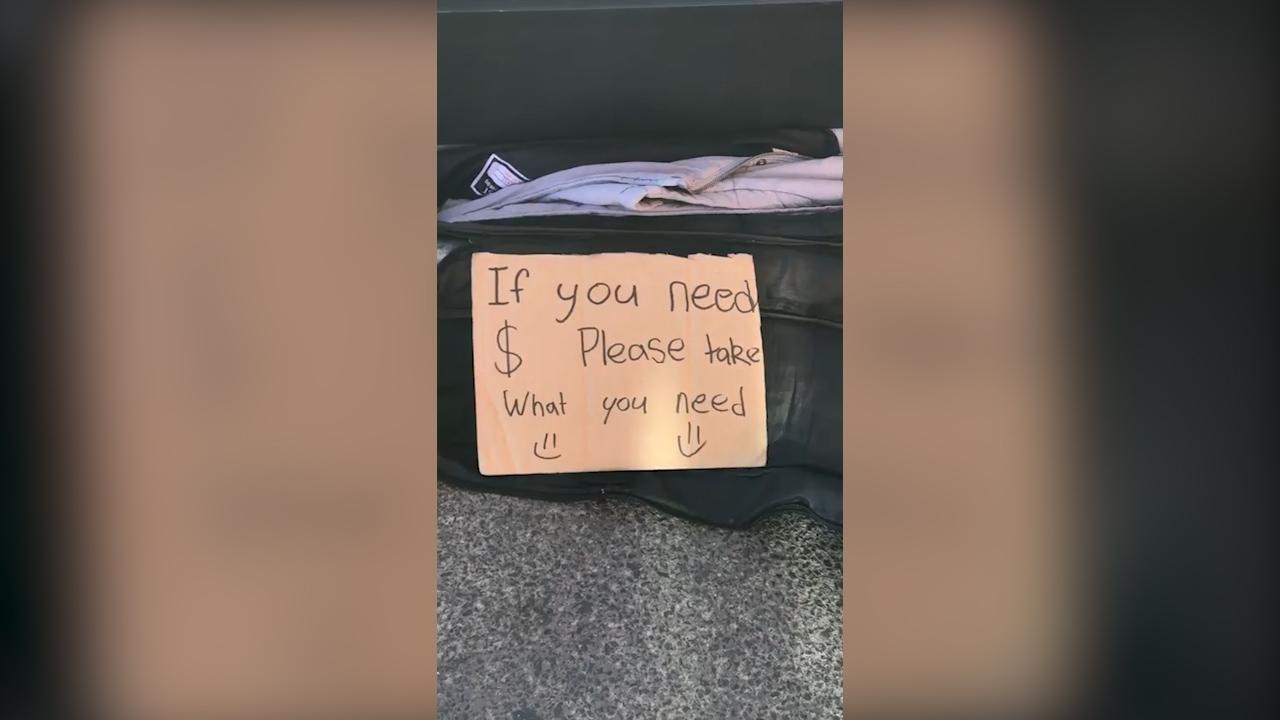 If you need
$ Please take
What you need